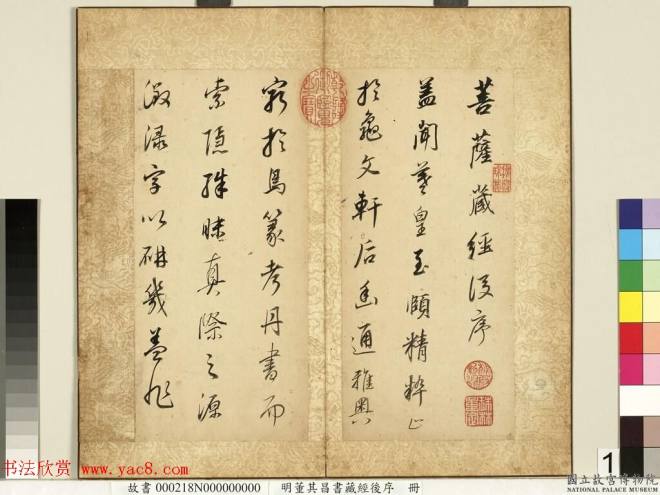 菩薩藏經後序
蓋聞羲皇至賾精粹止
於龜文軒后幽通雅奧
窮於鳥篆考丹書而
索隱殊昧真際之源
徵淥字以研幾蓋非
1
國立故宮博物院
NATIONAL PALACE MUSEUM
书法欣赏 www.yac8.com
故書 000218N000000000 明董其昌書藏經後序 冊